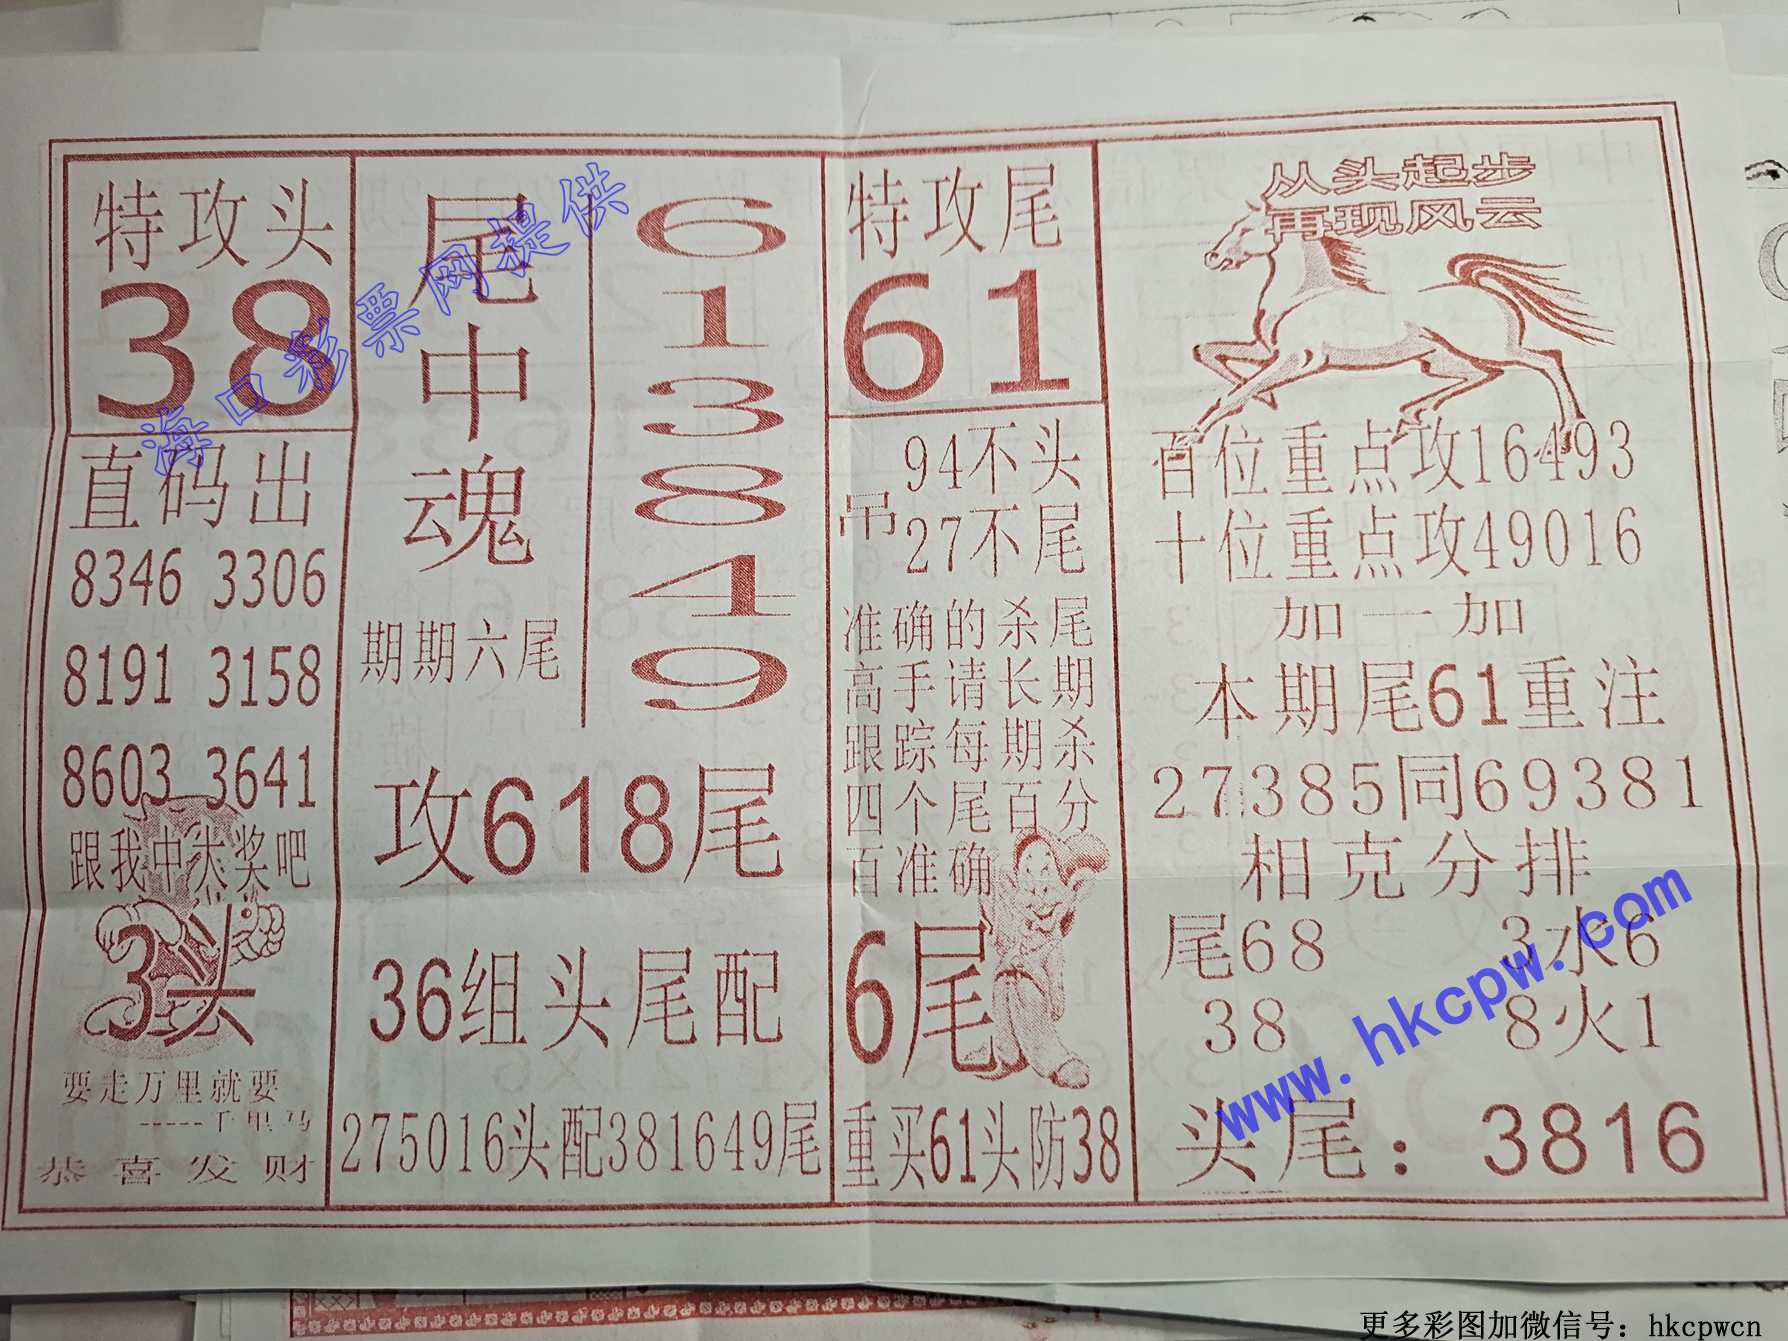 特攻头
38
直码出
8346 3306
8191 3158
8603 3641
跟我中大奖吧
3头
要走万里就要
-----千里马
恭喜发财
尾中魂
期期六尾
6
1
3
8
4
9
攻618尾
36组头尾配
275016头配381649尾
特攻尾
61
吊
94不头
27不尾
准确的杀尾
高手请长期
跟踪每期杀
四个尾百分
百准确
6尾
重买61头防38
从头起步
再现风云
百位重点攻16493
十位重点攻49016
加一加
本期尾61重注
27385同69381
相克分排
尾68 3水6
38 8火1
头尾：3816
海口彩票网提供
www.hkcpw.com
更多彩图加微信号：hkcpwcn